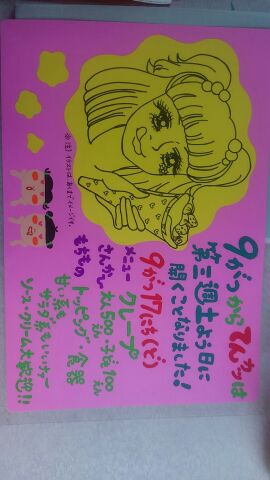 9がつから てんカツは
第三週土よう日に
開くことなりました!
9がつ17にち(ど)
メニュー クレープ
さんかひ 大人500・子ども100円
もちもの トッピング・食器
甘い系も
サラダ系もいいねー
ソース・クリーム大歓迎!!
※(注)イラストは、あくまでイメージです。